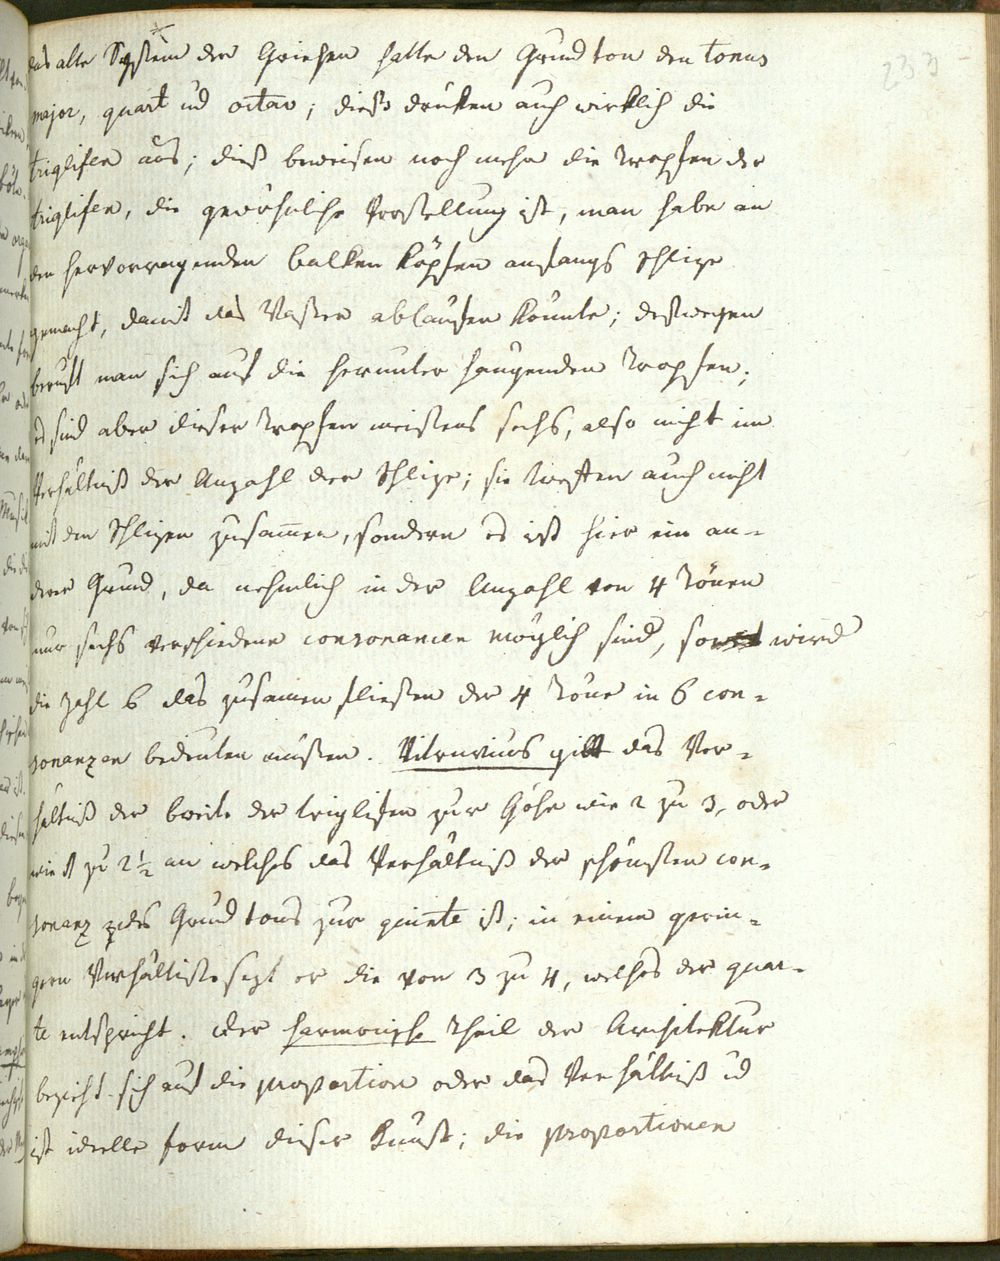 233
das alte System der Griechen hatte den Grundton den tonus
major, quart ud octav; diese drükten auch wirklich die
triglifen aus; dieß beweisen noch mehr die Tropfen der
triglifen, die gewöhnliche Vorstellung ist, man habe an
den hervorragenden balken köpfen anfangs Schlize
gemacht, damit das Wasser ablaufen könnte; deßwegen
beruft man sich auf die herunter hangenden Tropfen;
es sind aber dieser Tropfen meistens sechs, also nicht im
Verhältniß der Anzahl der Schlize; sie treffen auch nicht
mit den Schlizen zusamen, sondern es ist hier ein an-
derer Grund, da nehmlich in der Anzahl von 4 Tönen
nur sechs verschiedene consonancen möglich sind, so wird
die zahl 6 das zusamen fließen der 4 Töne in 6 con-
sonanzen bedeuten müßen. Vitruvius gibt das Ver-
hältniß der breite der triglifen zur Höhe wie 2 zu 3, oder
wie 1 zu 2 ½ an welches das Verhältniß der schönsten con-
sonanz des Grundtons zur quinte ist; in einem gerin-
gern Verhältiße sezt er die von 3 zu 4, welches der quar-
te entspricht. der harmonische Theil der Architektur
bezieht sich auf die proportion oder das Verhältniß ud
ist ideelle form dieser Kunst; die proportionen